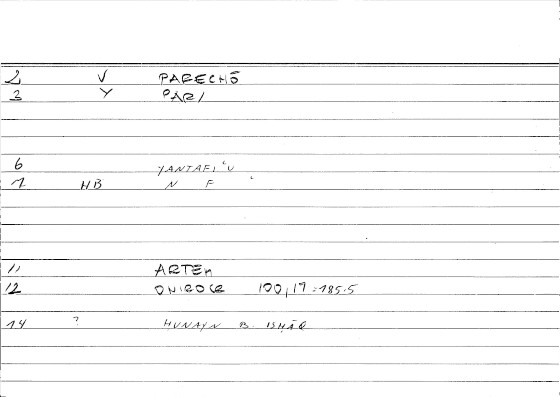 2 V PARECHŌ
3 Y PARI
6 YANTAFI'U
7 HB N F
11 ARTEM
12 ONIROCR 100,17 = 185.5
14 ? HUNAYN B. ISHĀQ